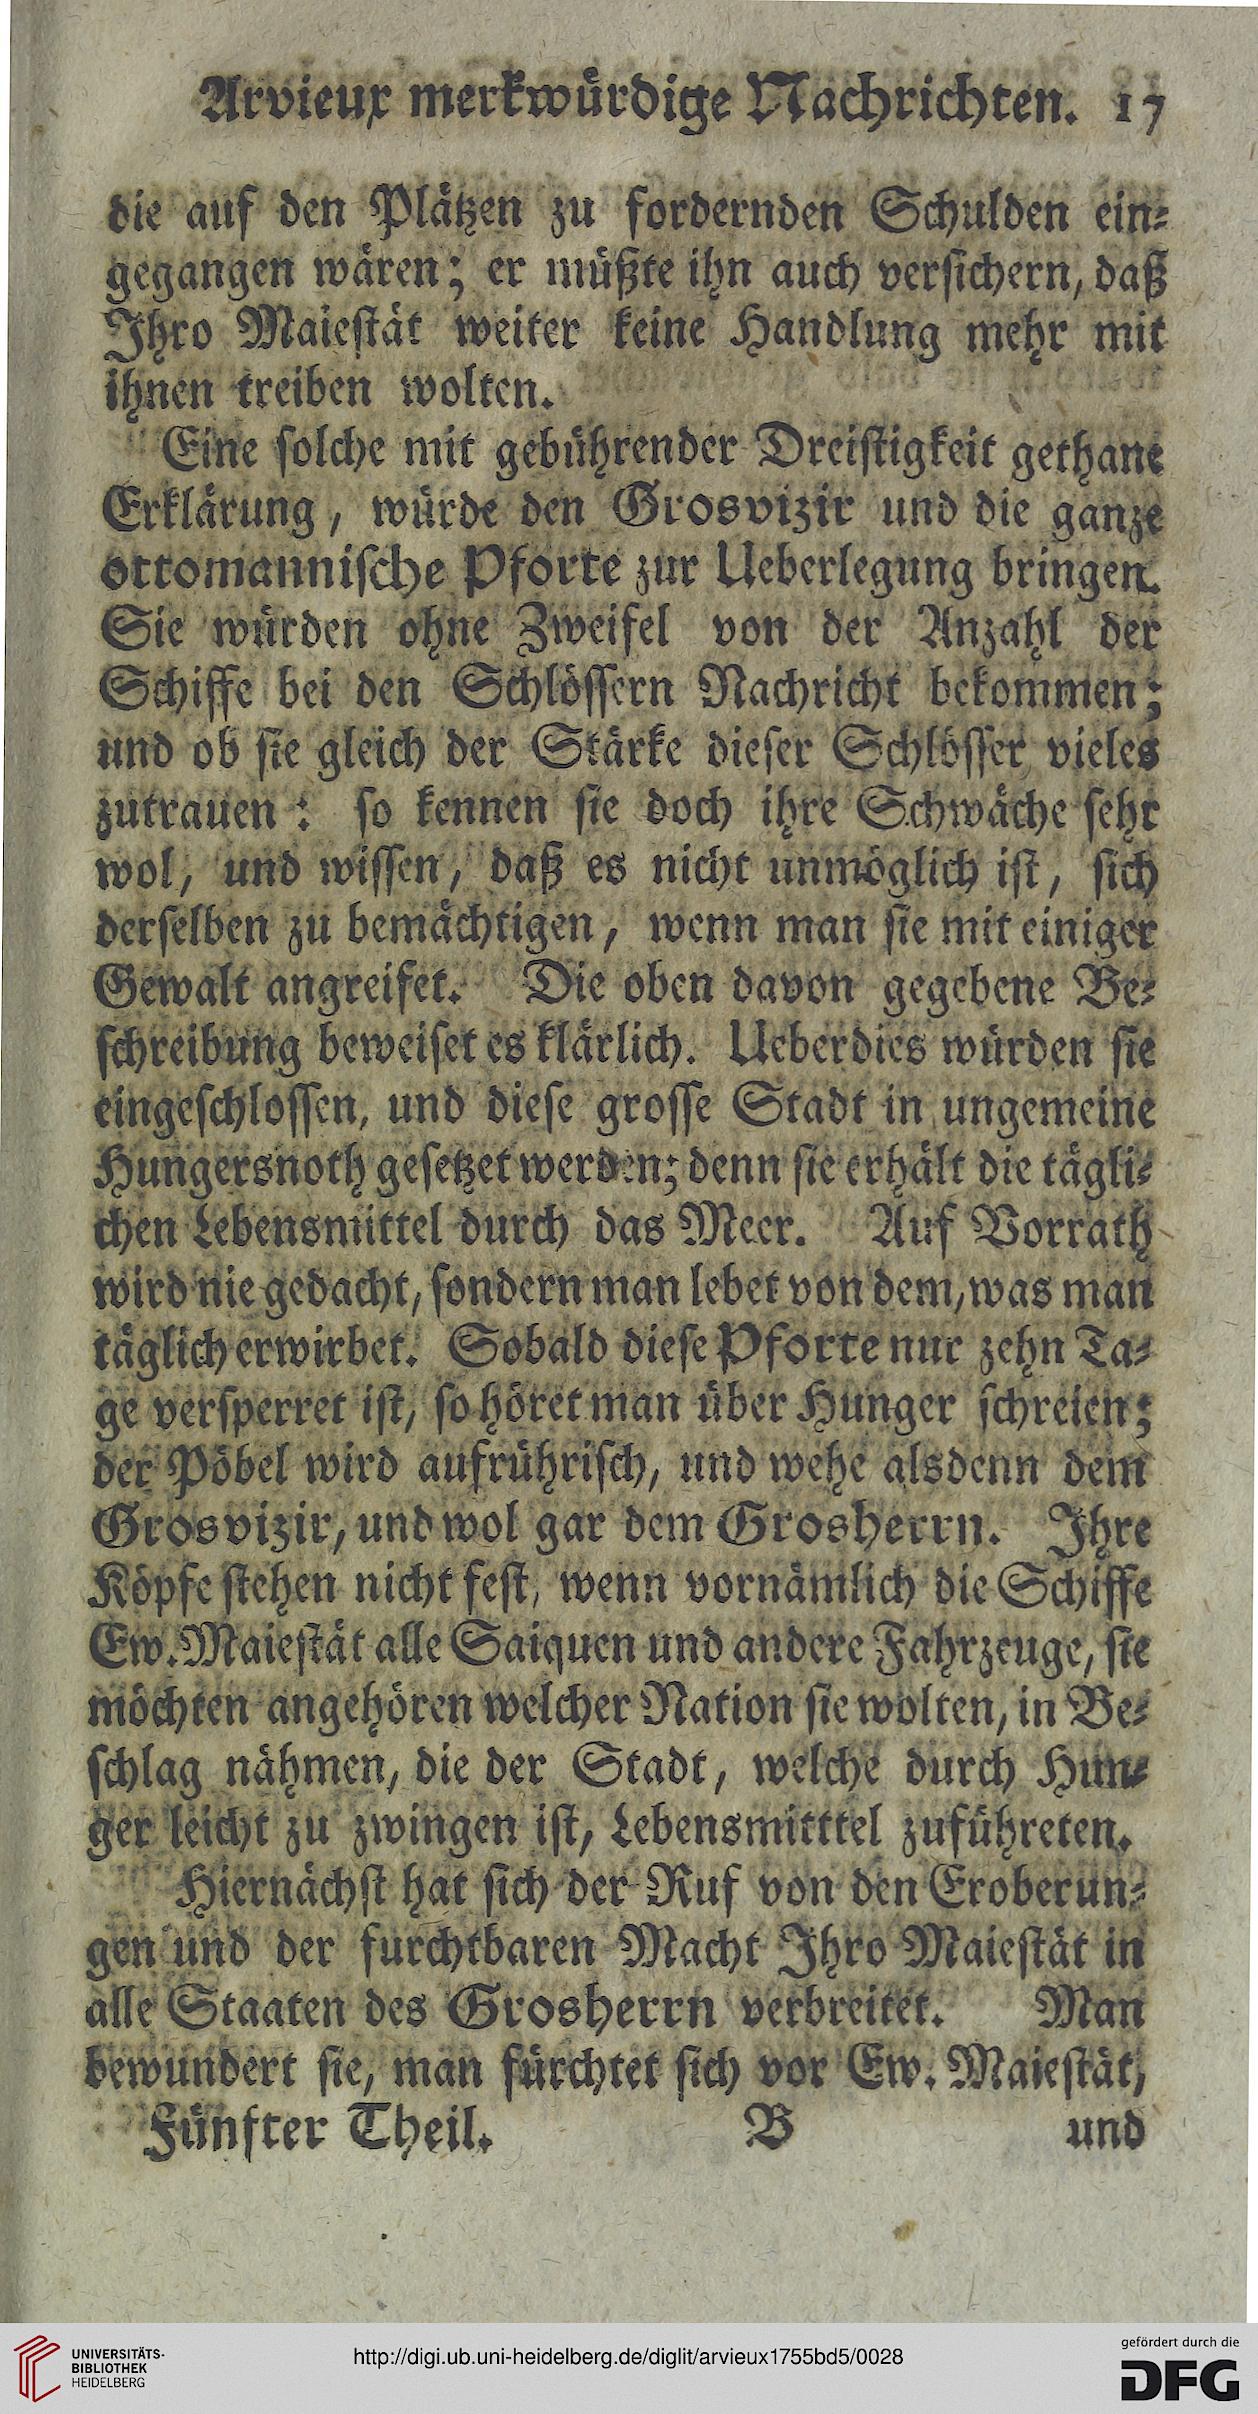 Arvieux merkwürdige Nachrichten. 17
die auf den Plätzen zu fordernden Schulden ein-
gegangen wären; er müßte ihn auch versichern, daß
Ihro Maiestät weiter keine Handlung mehr mit
ihnen treiben wolten.
Eine solche mit gebührender Dreistigkeit gethane
Erklärung, würde den Grosvizir und die ganze
ottomannische Pforte zur Ueberlegung bringen.
Sie würden ohne Zweifel von der Anzahl der
Schiffe bei den Schlössern Nachricht bekommen;
und ob sie gleich der Stärke dieser Schlösser vieles
zutrauen: so kennen sie doch ihre Schwäche sehr
wol, und wissen, daß es nicht unmöglich ist, sich
derselben zu bemächtigen, wenn man sie mit einiger
Gewalt angreifet. Die oben davon gegebene Be-
schreibung beweiset es klärlich. Ueberdies würden sie
eingeschlossen, und diese grosse Stadt in ungemeine
Hungersnoth gesetzet werden; denn sie erhält die tägli-
chen Lebensmittel durch das Meer. Auf Vorrath
wird nie gedacht, sondern man lebet von dem, was man
täglich erwirbet. Sobald diese Pforte nur zehn Ta-
ge versperret ist, so höret man über Hunger schreien;
der Pöbel wird aufrührisch, und wehe alsdenn dem
Grosvizir, und wol gar dem Grosherrn. Ihre
Köpfe stehen nicht fest, wenn vornämlich die Schiffe
Ew. Maiestät alle Saiquen und andere Fahrzeuge, sie
möchten angehören welcher Nation sie wolten, in Be-
schlag nähmen, die der Stadt, welche durch Hun-
ger leicht zu zwingen ist, Lebensmitttel zuführeten.
Hiernächst hat sich der Ruf von den Eroberun-
gen und der furchtbaren Macht Ihro Maiestät in
alle Staaten des Grosherrn verbreitet. Man
bewundert sie, man fürchtet sich vor Ew. Maiestät,
Fünfter Theil. B und
UNIVERSITÄTS-
BIBLIOTHEK
HEIDELBERG
http://digi.ub.uni-heidelberg.de/diglit/arvieux1755bd5/0028
gefördert durch die
DFG